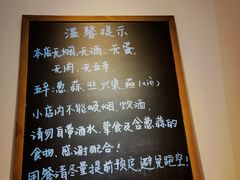 温馨提示
本店无烟、无酒、无蛋、
无肉、无五辛
五辛:葱、蒜、韭、兴渠、薤(xiè)
小店内不能吸烟、饮酒
请勿自带酒水、荤食及含葱蒜的
食物、感谢配合!
用餐请尽量提前预定,避免跑空!